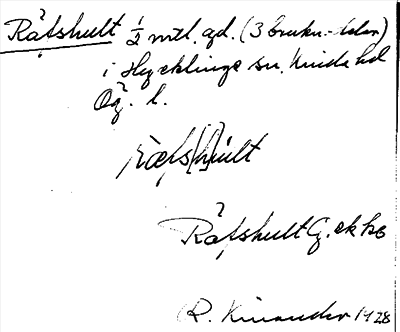 Råtshult 1/2 mtl. gd. (3 brukn.-delar)
i Hycklinge sn. Kinda hd
Ög. l.
ræ̀ts[h]ult
Råtshult G. ek ks
R. Kinander 1928